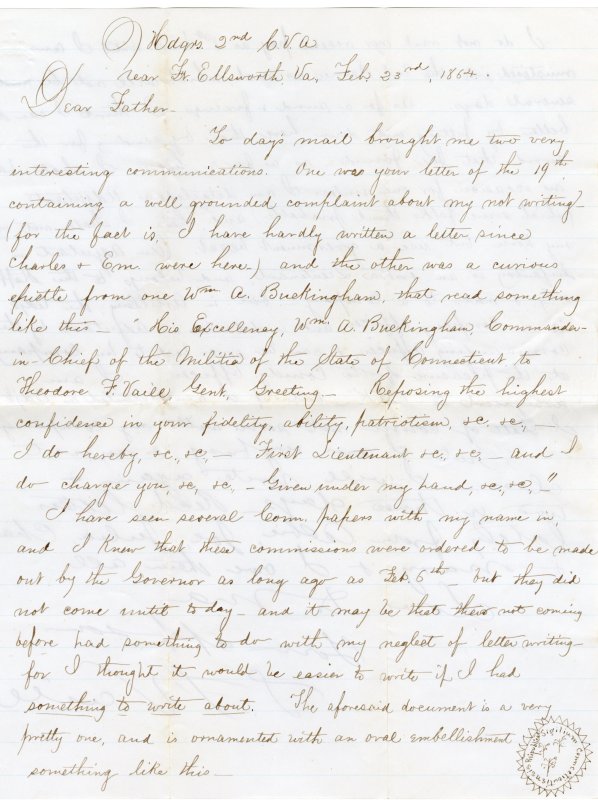 Hdqrs. 2nd C.V.A.
near Ft. Ellsworth, Va, Feb. 23rd, 1864.
Dear Father—
To day's mail brought me two very
interesting communications. One was your letter of the 19th,
containing a well grounded complaint about my not writing—
(for the fact is, I have hardly written a letter since
Charles & Em were here—) and the other was a curious
epistle from one Wm. A. Buckingham, that read something
like this— "His Excellency, Wm. A. Buckingham, Commander-
in-Chief of the Militia of the State of Connecticut to
Theodore F. Vaill, Gent, Greeting— Reposing the highest
confidence in your fidelity, ability, patriotism, &c. &c.,—
I do hereby, &c., &c,— First Lieutenant &c. &c.— and I
do charge you, &c, &c,— Given under my hand, &c., &c,—"
I have seen several Conn. papers with my name in,
and I knew that these commissions were ordered to be made
out by the Governor as long ago as Feb. 6th— but they did
not come until to day— and it may be that their not coming
before had something to do with my neglest of letter writing—
for I thought it would be easier to write if I had
something to write about. The aforesaid document is a very
pretty one, and is ornamented with an oval embellishment
something like this—